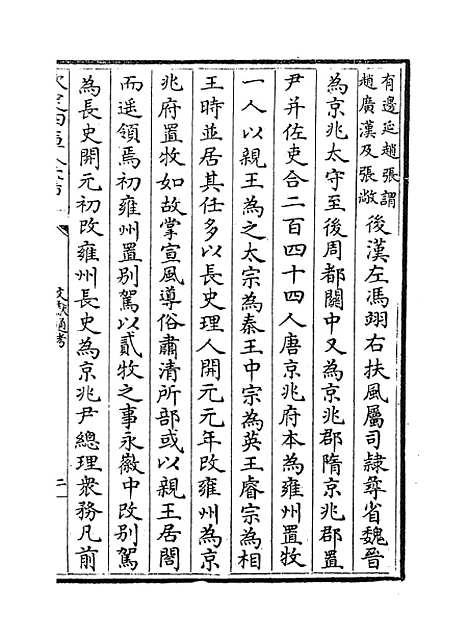 有邊延趙張謂
趙廣漢及張敞
後漢左馮翊右扶風屬司隸尋省魏晉
為京兆太守至後周都關中又為京兆郡隋京兆郡置
尹并佐吏合二百四十四人唐京兆府本為雍州置牧
一人以親王為之太宗為秦王中宗為英王睿宗為相
王時並居其任多以長史理人開元元年改雍州為京
兆府置牧如故掌宣風導俗肅清所部或以親王居閤
而遥領焉初雍州置别駕以貳牧之事永徽中改别駕
為長史開元初改雍州長史為京兆尹總理衆務凡前
文獻通考